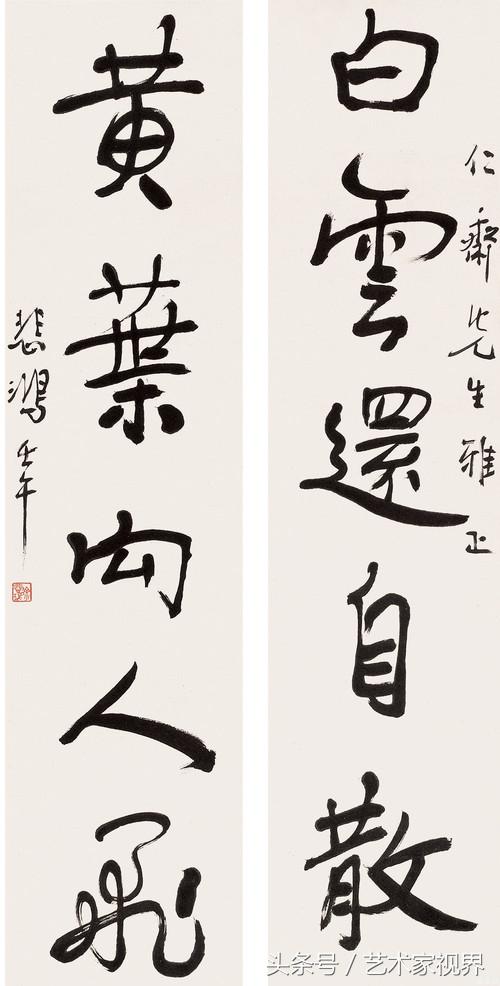 仁齋先生雅正
白雲還自散
黃葉向人飛
悲鴻壬午
头条号／艺术家视界